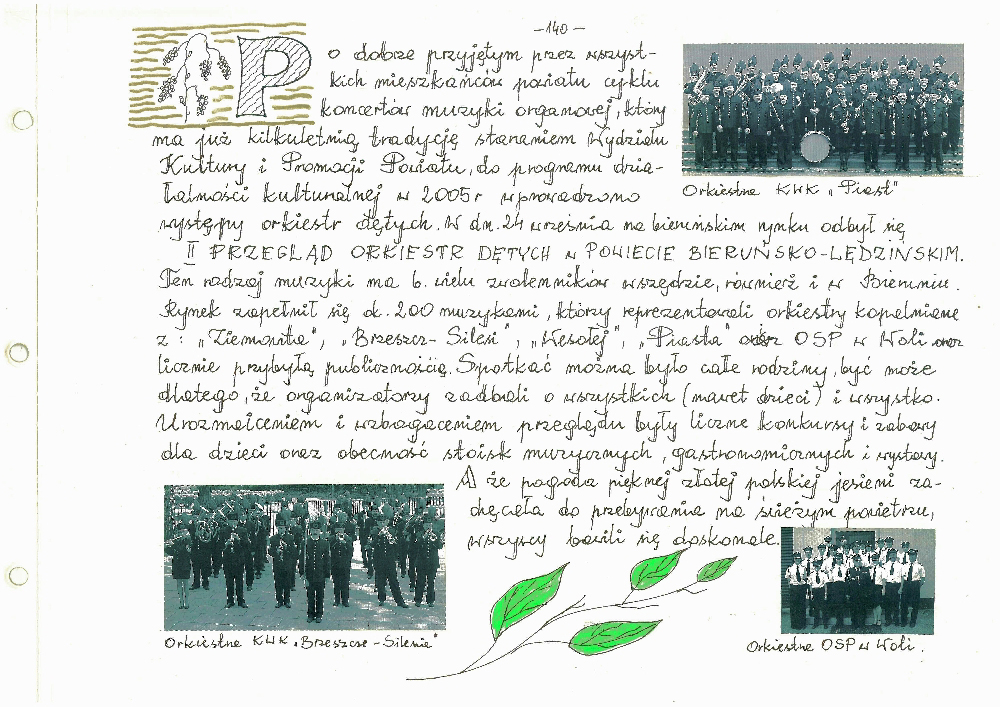 -140-
Po dobrze przyjętym przez wszyst-
kich mieszkańców powiatu cyklu
koncertów muzyki organowej, który
ma już kilkuletnią tradycję staraniem Wydziału
Kultury i Promocji Powiatu, do programu dzia-
łalności kulturalnej w 2005r wprowadzono
występy orkiestr dętych. W dn. 24 września na bieruńskim rynku odbył się
II PRZEGLĄD ORKIESTR DĘTYCH w POWIECIE BIERUŃSKO-LĘDZIŃSKIM.
Ten rodzaj muzyki ma b. wielu zwolenników wszędzie, również i w Bieruniu.
Rynek zapełnił się ok. 200 muzykami, którzy reprezentowali orkiestry kopalniane
z: „Ziemowita", „Brzeszcz-Silesi", „Wesołej", „Piasta" oraz OSP w Woli oraz
licznie przybyłą publicznością. Spotkać można było całe rodziny, być może
dlatego, że organizatorzy zadbali o wszystkich (nawet dzieci) i wszystko.
Urozmaiceniem i wzbogaceniem przeglądu były liczne konkursy i zabawy
dla dzieci oraz obecność stoisk muzycznych, gastronomicznych i wystawy.
A że pogoda pięknej złotej polskiej jesieni za-
chęcała do przebywania na świeżym powietrzu,
wszyscy bawili się doskonale.
Orkiestra KWK „Piast"
Orkiestra KWK „Brzeszcze-Silesia"
Orkiestra OSP w Woli.